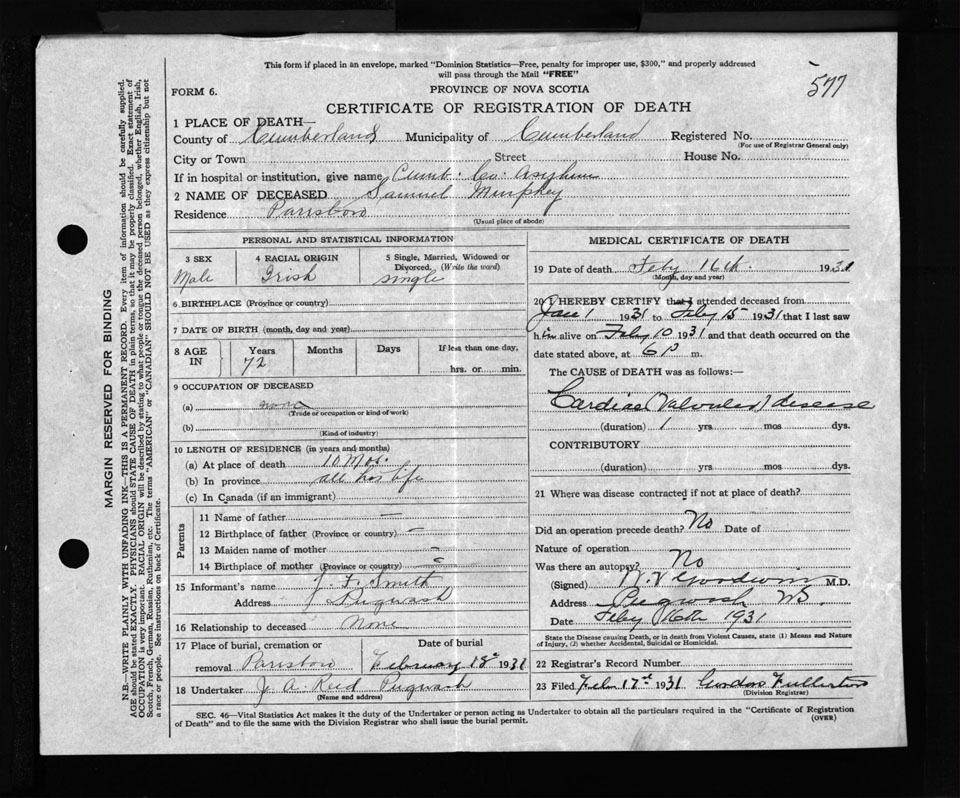 This form if placed in an envelope, marked "Dominion Statistics—Free, penalty for improper use, $300," and properly addressed
will pass through the Mail "FREE"
577
FORM 6.
PROVINCE OF NOVA SCOTIA
CERTIFICATE OF REGISTRATION OF DEATH
1 PLACE OF DEATH—
County of Cumberland Municipality of Cumberland Registered No.
(For use of Registrar General only)
City or Town Street House No.
If in hospital or institution, give name Cumb. Co. Asylum
2 NAME OF DECEASED Samuel Murphey
Residence Parrsboro
(Usual place of abode)
PERSONAL AND STATISTICAL INFORMATION
3 SEX 4 RACIAL ORIGIN 5 Single, Married, Widowed or
Divorced. (Write the word)
Male Irish single
6 BIRTHPLACE (Province or country)
7 DATE OF BIRTH (month, day and year)
8 AGE IN Years Months Days If less than one day,
72 hrs. or min.
9 OCCUPATION OF DECEASED
(a) none
(Trade or occupation or kind of work)
(b)
(Kind of industry)
10 LENGTH OF RESIDENCE (in years and months)
(a) At place of death 10 Mos.
(b) In province all his life
(c) In Canada (if an immigrant)
Parents
11 Name of father —
12 Birthplace of father (Province or country) —
13 Maiden name of mother —
14 Birthplace of mother (Province or country) —
15 Informant's name J. F. Smith
Address Pugwash
16 Relationship to deceased None
17 Place of burial, cremation or Date of burial
removal Parrsboro February 18th 1931
18 Undertaker J. A. Reid Pugwash
(Name and address)
MEDICAL CERTIFICATE OF DEATH
19 Date of death Feby 16th. 1931
(Month, day and year)
20 I HEREBY CERTIFY that I attended deceased from
Jan 1 1931 to Feby 15 1931 that I last saw
him alive on Feby 10 1931 and that death occurred on the
date stated above, at 6 p m.
The CAUSE of DEATH was as follows:—
Cardiac (Valvular) disease
(duration) 1 yrs mos dys.
CONTRIBUTORY
(duration) yrs. mos. dys.
21 Where was disease contracted if not at place of death?
Did an operation precede death? No Date of
Nature of operation
Was there an autopsy? No
(Signed) W V Goodwin M.D.
Address Pugwash, NS.
Date Feby 16th 1931
State the Disease causing Death, or in death from Violent Causes, state (1) Means and Nature
of Injury, (2) whether Accidental, Suicidal or Homicidal.
22 Registrar's Record Number
23 Filed Feb 17th 1931 Gordon Fullerton
(Division Registrar)
SEC. 46—Vital Statistics Act makes it the duty of the Undertaker or person acting as Undertaker to obtain all the particulars required in the "Certificate of Registration
of Death" and to file the same with the Division Registrar who shall issue the burial permit.
(OVER)
MARGIN RESERVED FOR BINDING
N.B.—WRITE PLAINLY WITH UNFADING INK—THIS IS A PERMANENT RECORD. Every item of information should be carefully supplied.
AGE should be stated EXACTLY. PHYSICIANS should STATE CAUSE OF DEATH in plain terms, so that it may be properly classified. Exact statement of
OCCUPATION is very important. RACIAL ORIGIN will be described by stating to what people or tongue the deceased person belonged, whether English, Irish,
Scotch, French, German, Russian, Ruthenian, etc. The terms "AMERICAN" or "CANADIAN" SHOULD NOT BE USED as they express citizenship but not
a race or people. See instructions on back of Certificate.